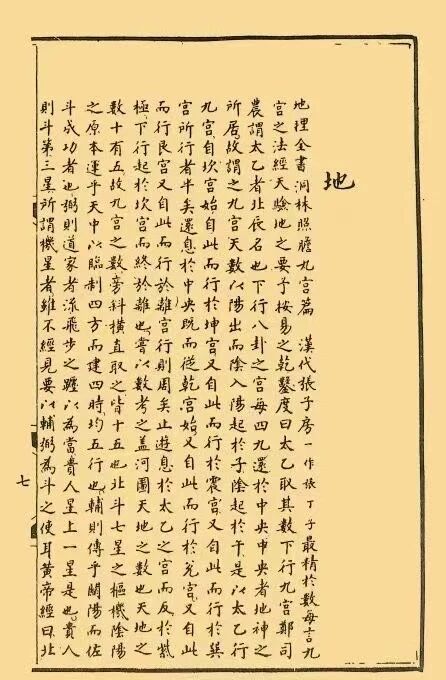 地
地理全書洞林照膽九宮篇　漢代張子房一作張丁子最精於數每言九
宮之法經天驗地之要予按易之乾鑿度曰太乙取其數下行九宮鄭司
農謂太乙者北辰名也下行八卦之宮每四九還於中央中央者地神之
所居故謂之九宮天數以陽出而陰入陽起於子陰起於午是以太乙行
九宮自坎宮始自此而行於坤宮又自此而行於震宮又自此而行於巽
宮所行者半矣還息於中央既而從乾宮始又自此而行於兌宮又自此
而行艮宮又自此而行於離宮行則周矣止遊息於太乙之宮而反於紫
極下行起於坎宮而終於離也嘗以數考之蓋河圖天地之數也天地之
數十有五故九宮之數旁斜橫直取之皆十五也北斗七星之樞機陰陽
之原本運乎天中以臨制四方而建四時均五行也輔則傳乎闓陽而佐
斗成功者也弼則道家者流飛步之躔以為當貴人星上一星是也貴人
則斗第三星所謂機星者雖不經見要以輔弼為斗之使耳黃帝經曰北
七